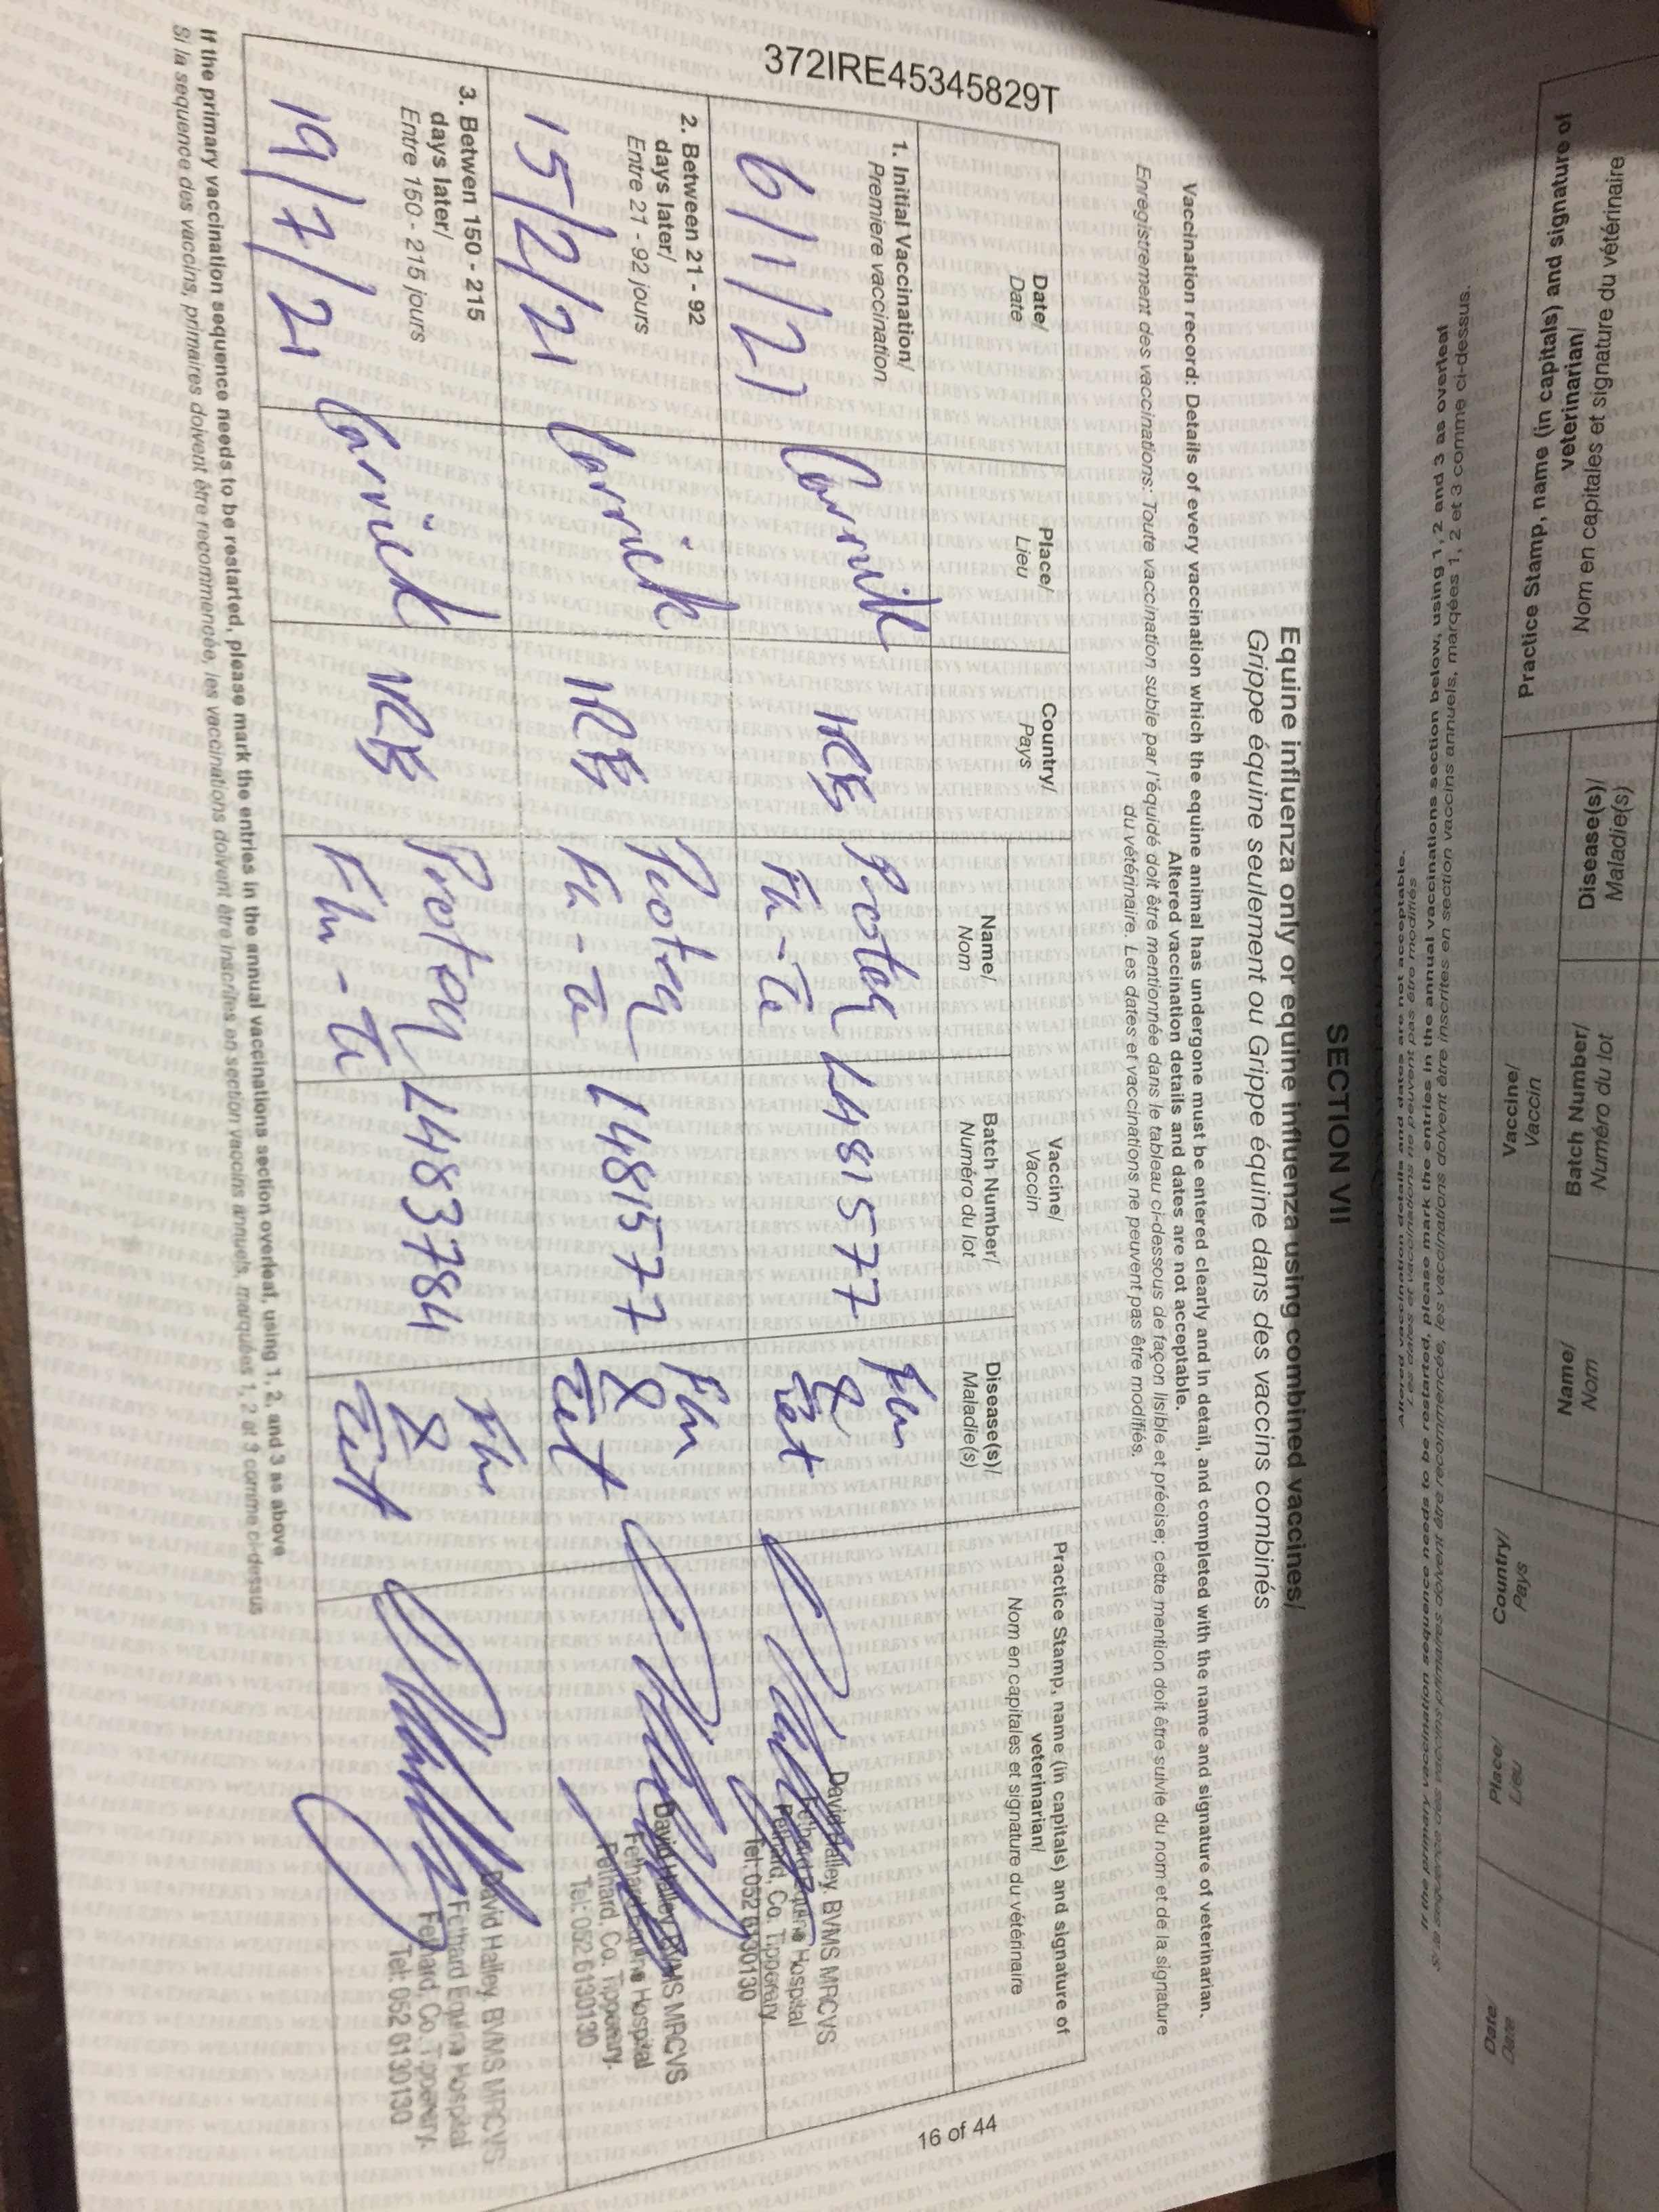 372IRE45345829T
SECTION VII
Equine influenza only or equine influenza using combined vaccines/
Grippe équine seulement ou Grippe équine dans des vaccins combinés
Vaccination record: Details of every vaccination which the equine animal has undergone must be entered clearly and in detail, and completed with the name and signature of veterinarian.
Altered vaccination details and dates are not acceptable.
Enregistrement des vaccinations: Toute vaccination subie par l'équidé doit être mentionnée dans le tableau ci-dessous de façon lisible et précise; cette mention doit être suivie du nom et de la signature
du vétérinaire. Les dates et vaccinations ne peuvent pas être modifiés.
Date/
Date
Place/
Lieu
Country/
Pays
Vaccine/
Vaccin
Name/
Nom
Batch Number/
Numéro du lot
Disease(s)/
Maladie(s)
Practice Stamp, name (in capitals) and signature of
veterinarian/
Nom en capitales et signature du vétérinaire
1. Initial Vaccination/
Premiere vaccination
6/1/21
Carrick
IRE
Proteq
Flu-Te
L481577
Flu
&
Tet
David Halley. BVMS MRCVS
Fethard Equine Hospital
Fethard, Co. Tipperary.
Tel: 052 6130130
2. Between 21 - 92
days later/
Entre 21 - 92 jours
15/2/21
Carrick
IRE
Proteq
Flu-Te
L481577
Flu
&
Tet
David Halley. BVMS MRCVS
Fethard Equine Hospital
Fethard, Co. Tipperary.
Tel: 052 6130130
3. Between 150 - 215
days later/
Entre 150 - 215 jours
19/7/21
Carrick
IRE
Proteq
Flu-Te
L483784
Flu
&
Tet
David Halley. BVMS MRCVS
Fethard Equine Hospital
Fethard, Co. Tipperary.
Tel: 052 6130130
If the primary vaccination sequence needs to be restarted, please mark the entries in the annual vaccinations section overleaf, using 1, 2, and 3 as above
Si la sequence des vaccins, primaires doivent être recommencée, les vaccinations doivent être inscrites en section vaccins annuels, marquées 1, 2 et 3 comme ci-dessus
16 of 44
Practice Stamp, name (in capitals) and signature of
veterinarian/
Nom en capitales et signature du vétérinaire
Disease(s)/
Maladie(s)
Vaccine/
Vaccin
Batch Number/
Numéro du lot
Name/
Nom
Country/
Pays
Place/
Lieu
Date/
Date
If the primary vaccination sequence needs to be restarted, please mark the entries in the annual vaccinations section below, using 1, 2 and 3 as overleaf
Si la sequence des vaccins primaires doivent être recommencée, les vaccinations doivent être inscrites en section vaccins annuels, marqées 1, 2 et 3 comme ci-dessus.
Altered vaccination details and dates are not acceptable.
Les dates et vaccinations ne peuvent pas être modifiés